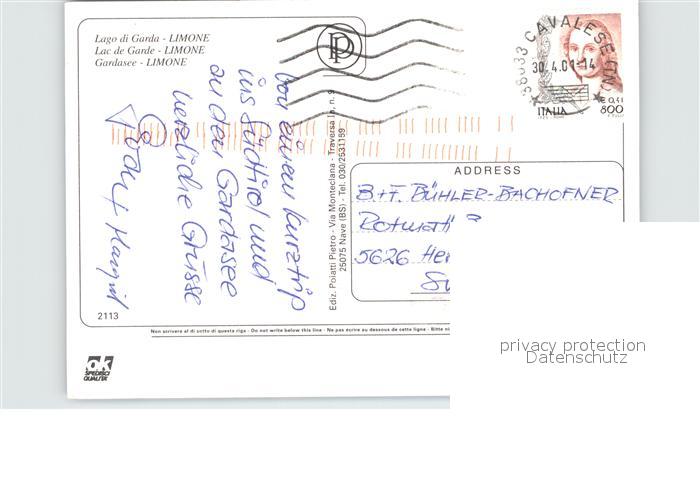 Lago di Garda - LIMONE
Lac de Garde - LIMONE
Gardasee - LIMONE
PP
38033 CAVALESE (TN)
30.4.01-14
€ 0,41
ITALIA 800
von einem Kurztrip
ins Südtirol und
an den Gardasee
herzliche Grüsse
Margrit
Ediz. Poiatti Pietro - Via Monteclana - Traversa In, n. 9
25075 Nave (BS) - Tel. 030/2531159
ADDRESS
B+F. BÜHLER-BACHOFNER
5626 Her
2113
Non scrivere al di sotto di questa riga - Do not write below this line - Ne pas écrire au dessous de cette ligne - Bitte ni
ok
SPEDISCI
QUALITÀ
privacy protection
Datenschutz